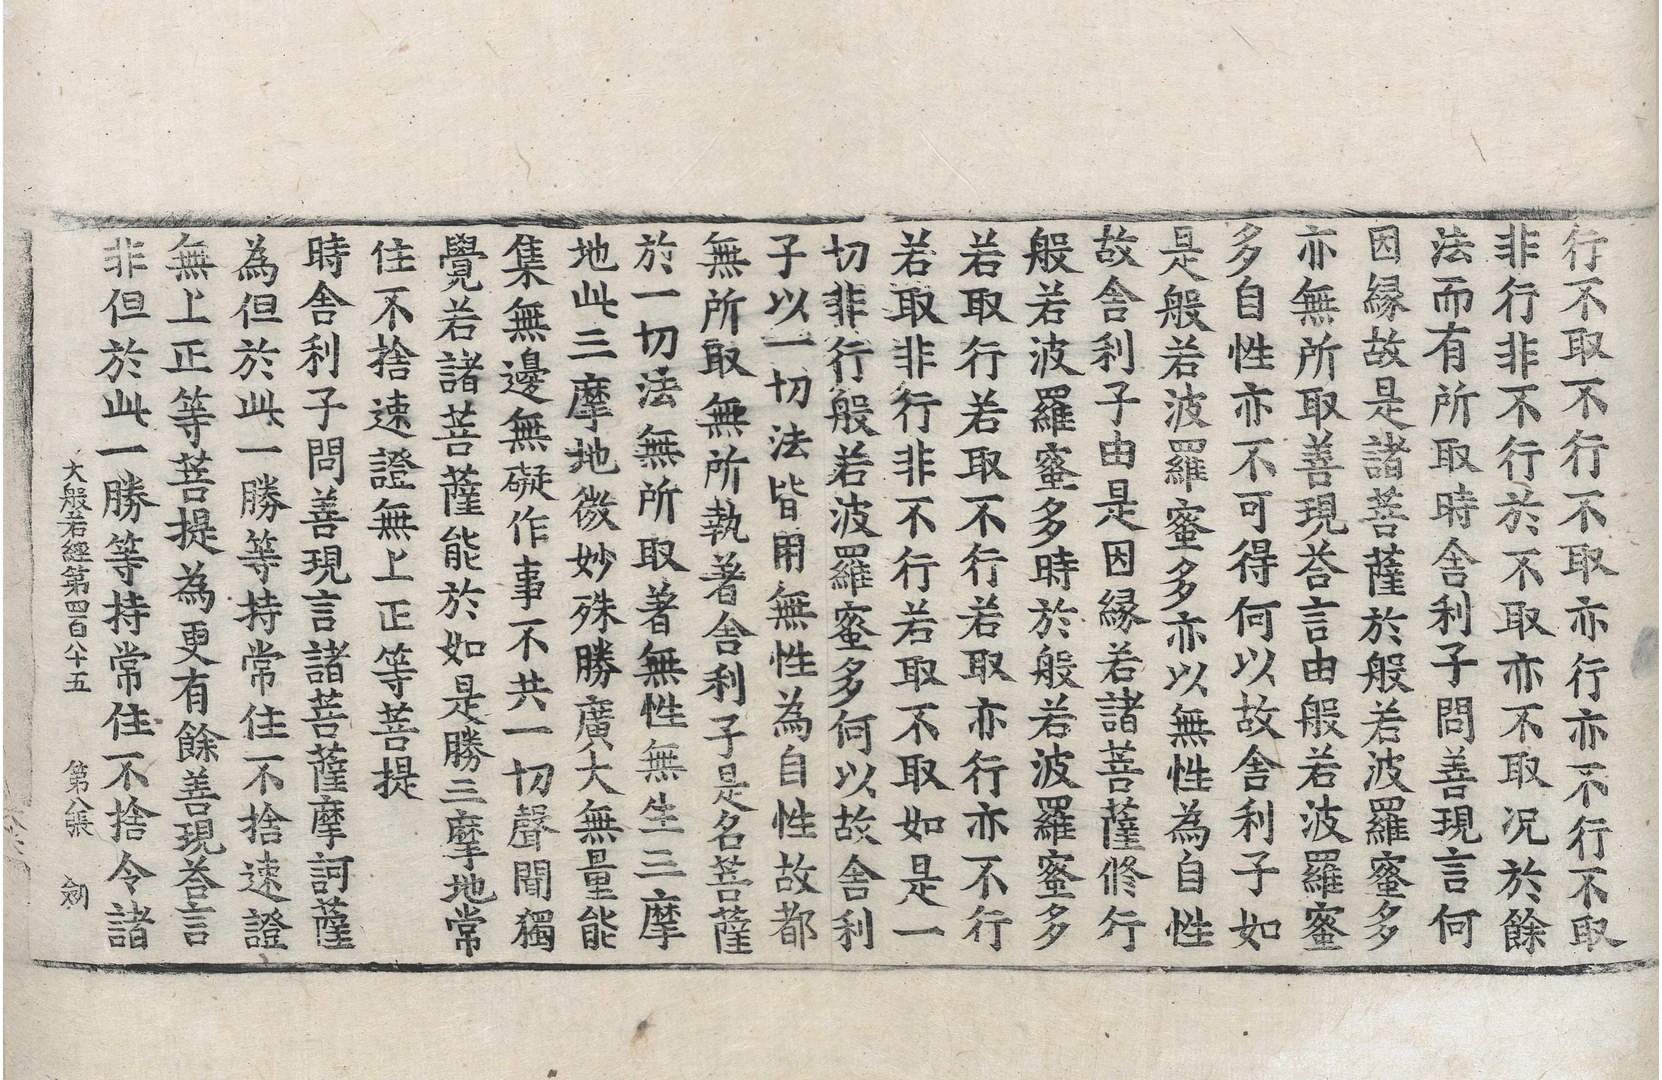 行不取不行不取亦行亦不行不取
非行非不行於不取亦不取况於餘
法而有所取時舍利子問善現言何
因縁故是諸菩薩於般若波羅蜜多
亦無所取善現荅言由般若波羅蜜
多自性亦不可得何以故舍利子如
是般若波羅蜜多亦以無性為自性
故舍利子由是因縁若諸菩薩修行
般若波羅蜜多時於般若波羅蜜多
若取行若取不行若取亦行亦不行
若取非行非不行若取不取如是一
切非行般若波羅蜜多何以故舍利
子以一切法皆用無性為自性故都
無所取無所執著舍利子是名菩薩
於一切法無所取著無性無生三摩
地此三摩地微妙殊勝廣大無量能
集無邊無礙作事不共一切聲聞獨
覺若諸菩薩能於如是勝三摩地常
住不捨速證無上正等菩提
時舍利子問善現言諸菩薩摩訶薩
為但於此一勝等持常住不捨速證
無上正等菩提為更有餘善現荅言
非但於此一勝等持常住不捨令諸
大般若經第四百八十五 第八張 劒